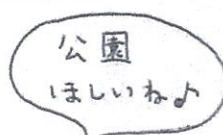 公園
ほしいね♪